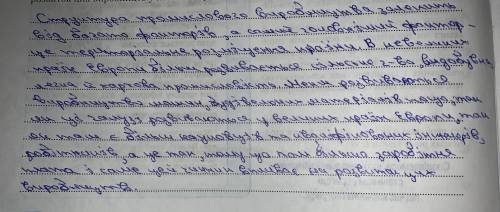 Структура промислового виробництва залежить
від багато факторів, а самий головніший фактор -
це територіальне розміщення країни. В невеликих
країн Європи більш розвивається сільське г-во, видобувна,
легка й харчова промисловість. Менш розвиваються
виробництва машин, будівельних матеріалів тощо, так
як ці галузі розвиваються у великих країн Европи, так
як там є більш наукових та кваліфікованих інженерів,
робітників, а це так, тому що там більша заробітня
плата і саме цей чинник впливає на розвиток цих
виробництв.